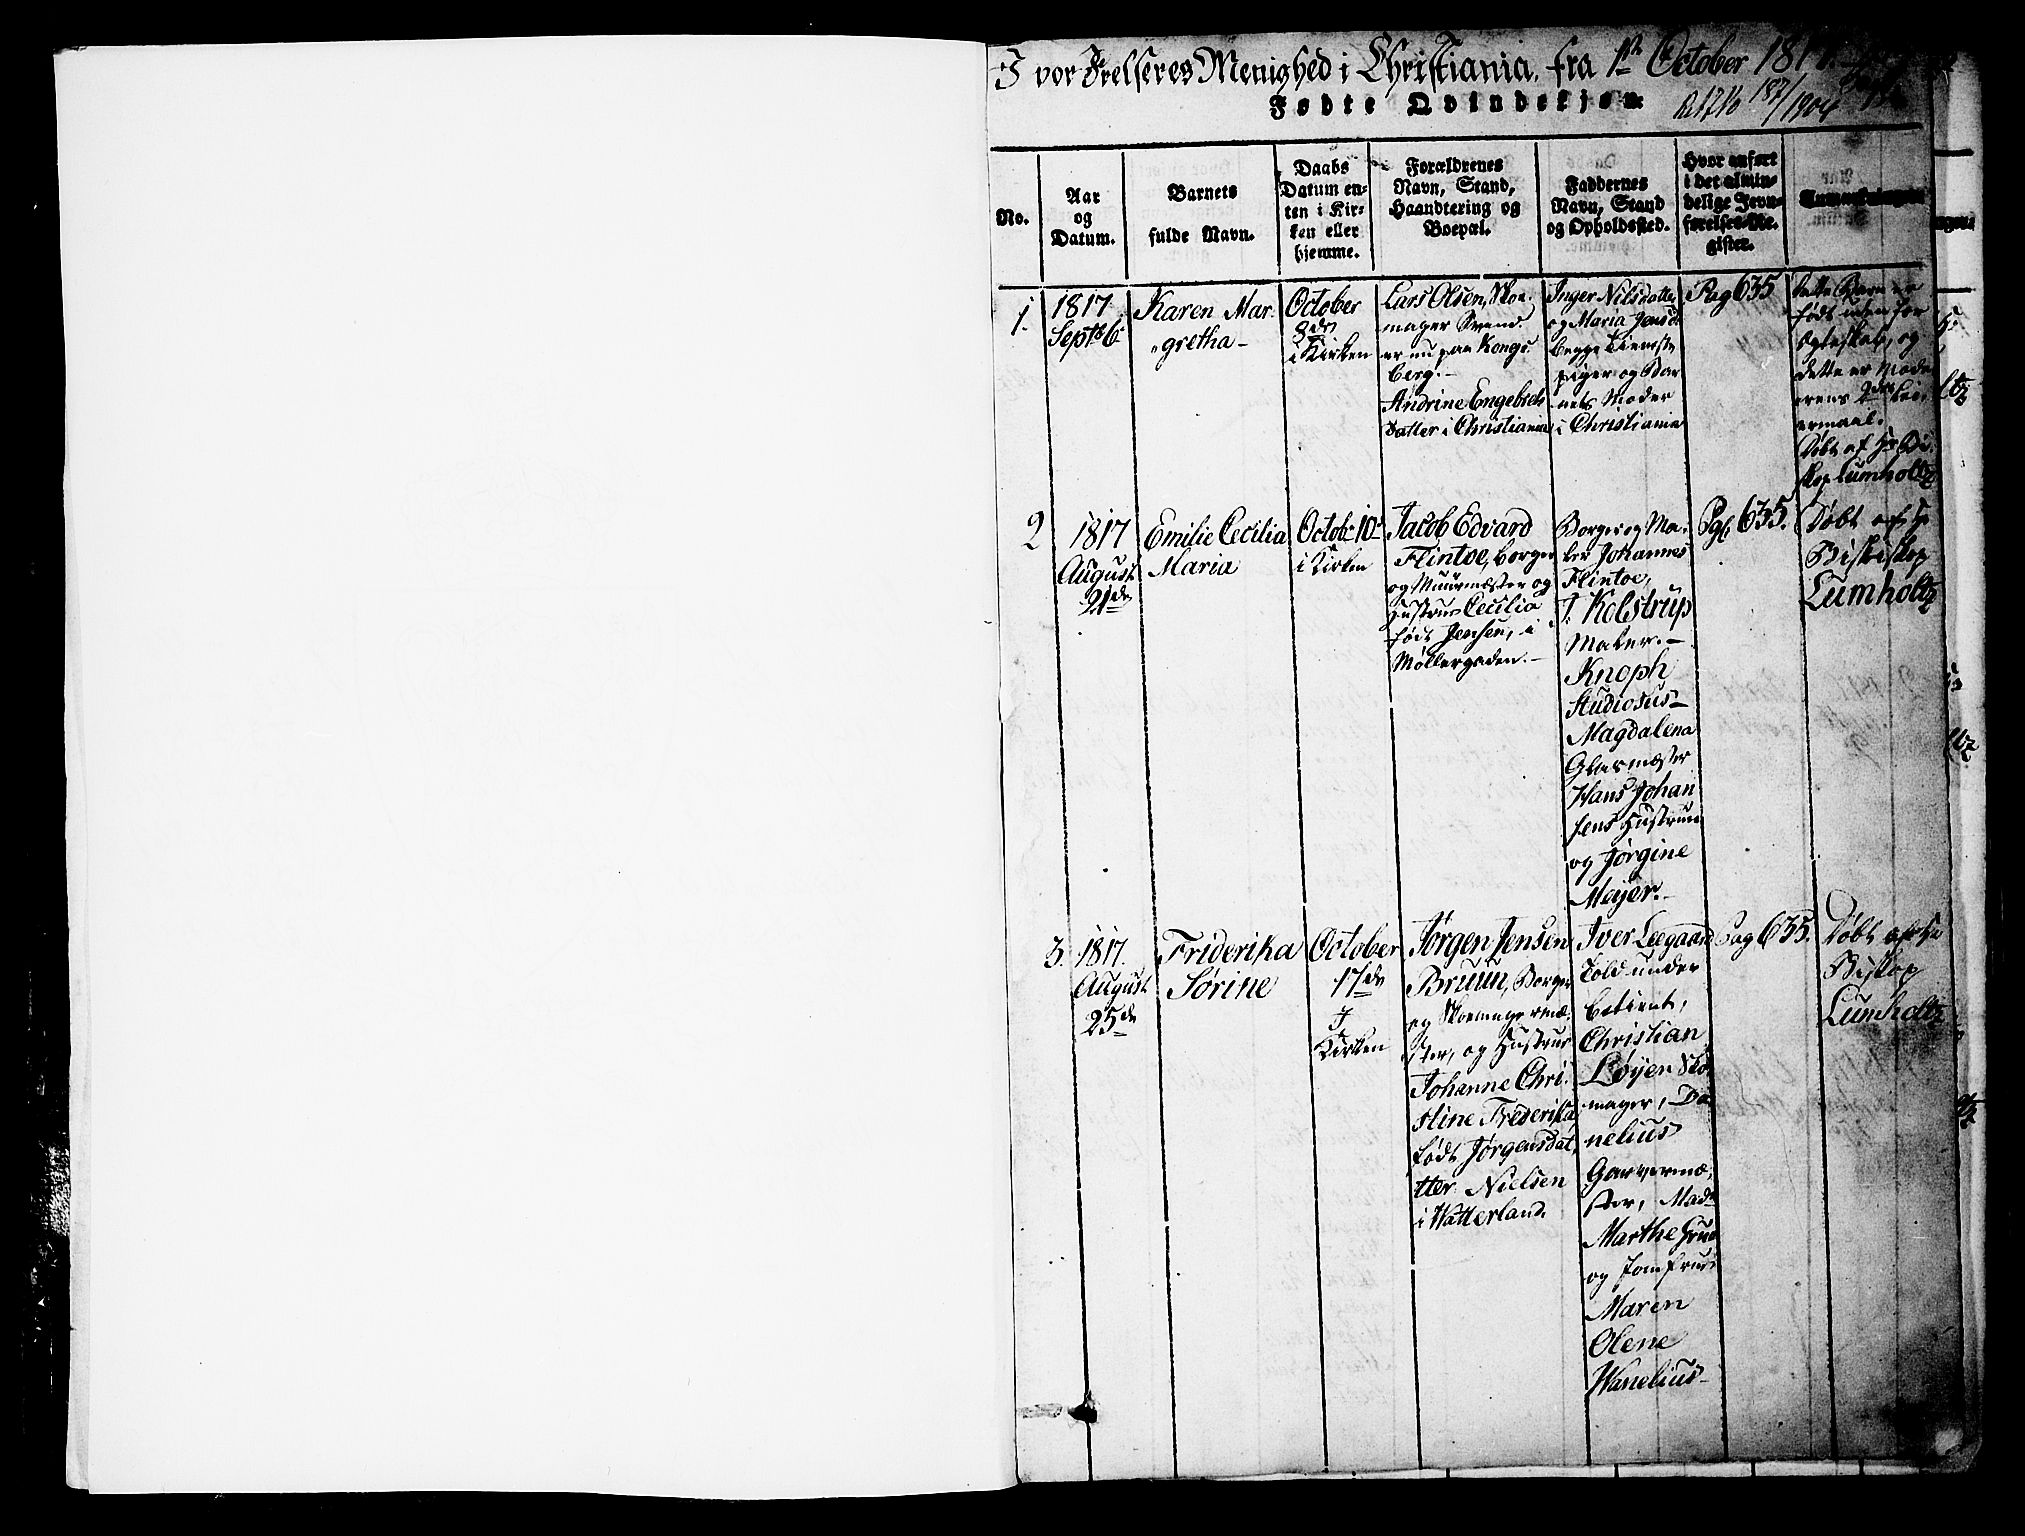 I vor Frelseres Menighed i Christiania, fra 1ste October 1817
Fødte Qvindekjøn
187/1904
No.
Aar
og
Datum.
Barnets
fulde Navn.
Daabs
Datum en-
ten i Kir-
ken eller
hjemme.
Forældrenes
Navn, Stand,
Haandtering og
Boepæl.
Faddernes
Navn, Stand
og Opholdssted.
Hvor anført
i det almin-
delige Jevn-
førelses-Re-
gister.
Anmærkninger.
1.
1817
Septbr 6
Karen Mar-
gretha
October
8de
i Kirken
Lars Olsen, Skoe-
mager Svend.
er nu paa Kongs-
berg.
Andrine Engebrets
Datter i Christiania
Inger Nilsdatter
og Maria Jensd.
begge Tieneste
piger og Bar-
nets Moder
i Christiania
Pag 635
Dette Barn er
født uden for
Egteskab, og
dette er Mode-
rens 2det Lei-
ermaal.
Døbt af Hr Bi-
skop Lumholtz
2
1817
August
21de
Emilie Cecilia
Maria
Octobr 10
i Kirken
Jacob Edvard
Flintoe, Borger
og Muurmester og
Hustrue Cecilia
født Jensen, i
Møllergaden.
Borger og Ma-
ler Johannes
Flintoe,
J. Kolstrup
Maler.
Knoph
Studiosus
Magdalena
Glarmester
Hans Johan
sens Hustrue
og Jørgine
Meyer.
Pag. 635.
Døbt af Hr
Biskop
Lumholtz
3.
1817.
August
25de
Friderika
Sørine
October
17de
I
Kirken
Jørgen Jensen
Bruun, Borger
og Skoemagermæ-
ster, og Hustrue
Johanne Chri-
stine Frederika
født Jørgensdat-
tter Nielsen
i Watterland.
Iver Leegaard
Told under
betient,
Christian
Løyer Sko-
mager, Da-
nelius
Garvermæ-
ster, Mad.
Marthe Gruu
og Jomfrue
Maren
Olene
Wanelius
Pag 635.
Døbt af Hr
Biskop
Lumholtz